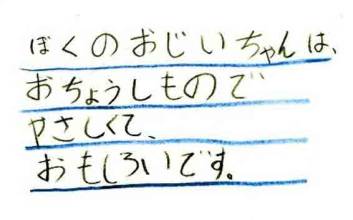 ぼくのおじいちゃんは、
おちょうしもので
やさしくて、
おもしろいです。